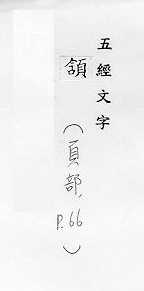 五經文字
頟
(頁部, P.66)